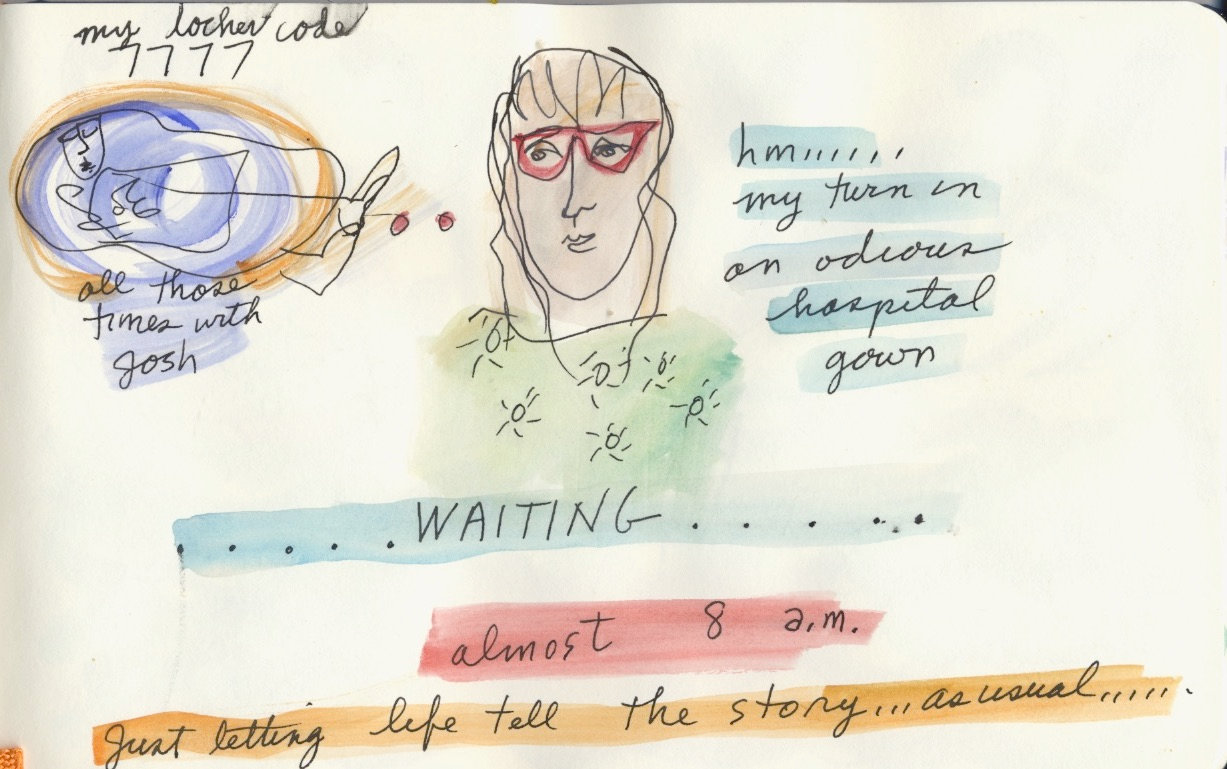 my locker code
7777
all those
times with
Josh
hm,,,,,,
my turn in
an odious
hospital
gown
.....WAITING.......
almost 8 a.m.
Just letting life tell the story,,,as usual,,,,,.